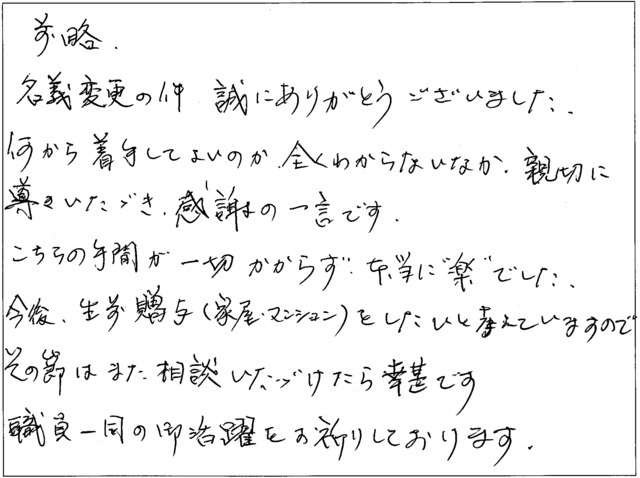 前略.
名義変更の件 誠にありがとうございました.
何から着手してよいのか、全くわからないなか、親切に
導きいただき、感謝の一言です.
こちらの手間が一切かからず、本当に"楽"でした.
今後、生前贈与(家屋・マンション)をしたいと考えていますので
その節はまた相談いただけたら幸甚です
職員一同の御活躍をお祈りしております.